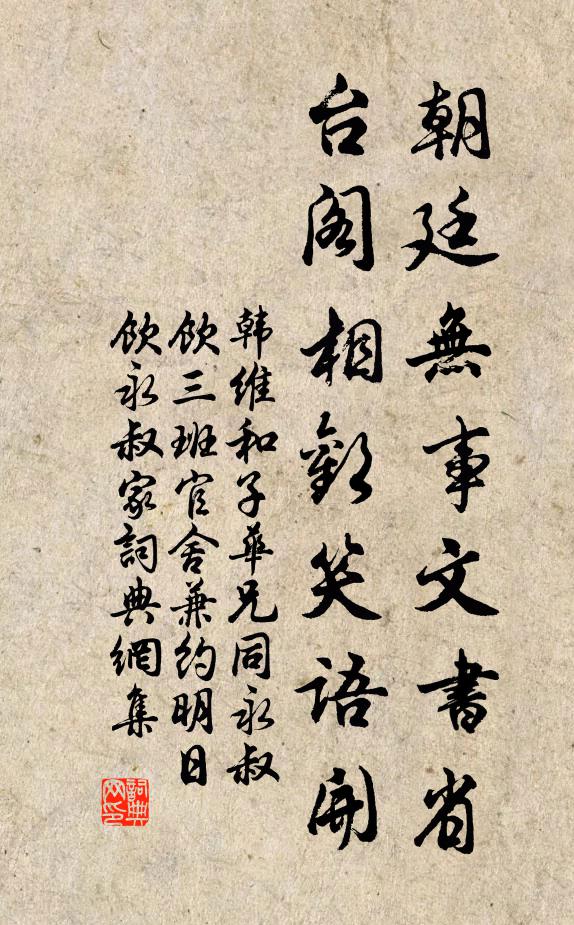 朝廷無事文書省
台阁相歡笑語開
韩維和子華兄同永叔
飲三班官舍兼約明日
飲永叔家詞典網集
詞典网印